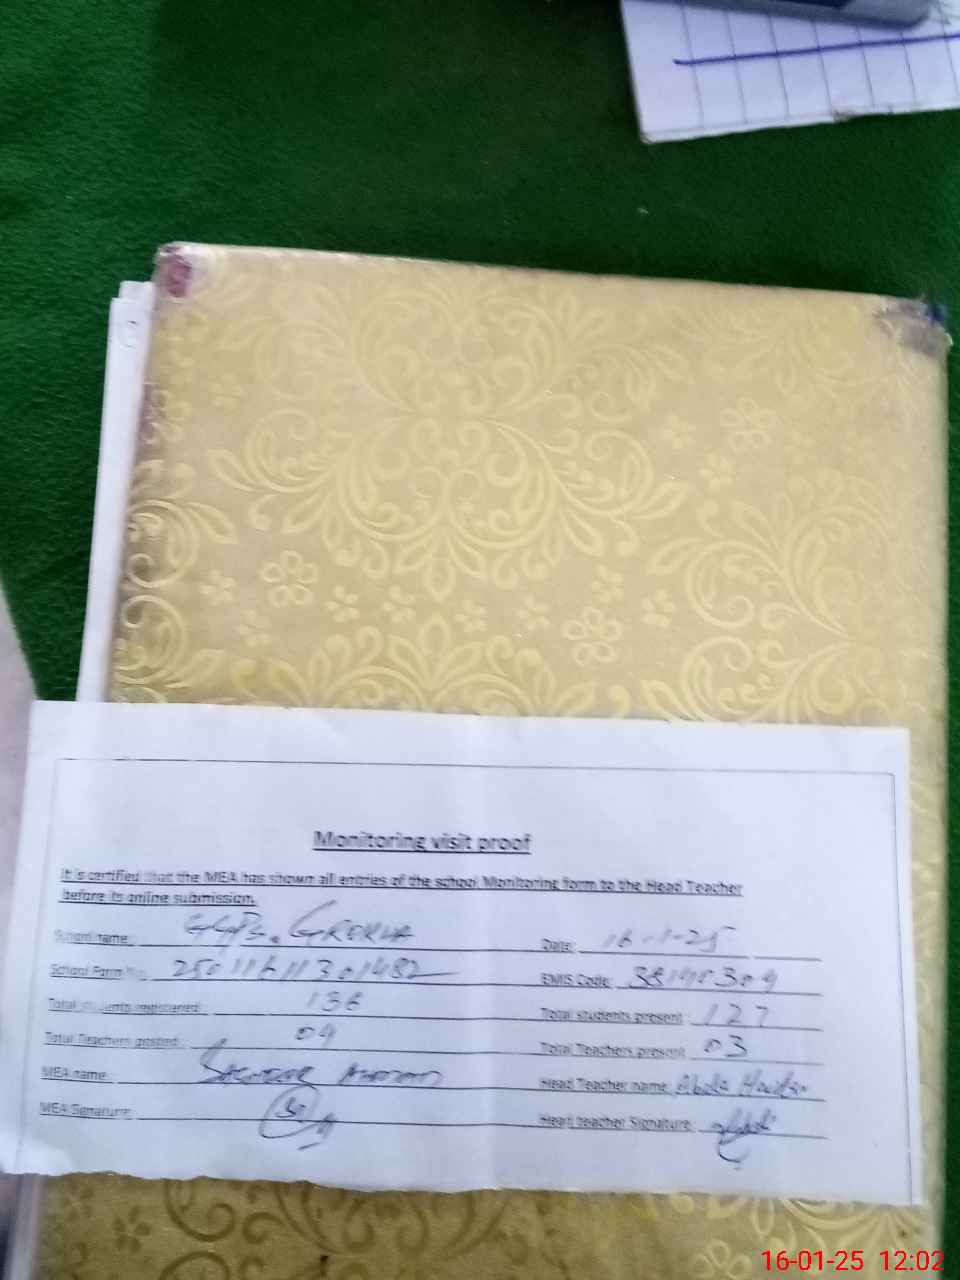 Monitoring visit proof
It is certified that the MEA has shown all entries of the school Monitoring form to the Head Teacher
before its online submission.
School name: Date: 16-1-25
School Form No. EMIS Code:
Total students registered: 136 Total students present: 127
Total Teachers posted: 04 Total Teachers present 03
MEA name: Head Teacher name:
MEA Signature: Head teacher Signature:
16-01-25 12:02